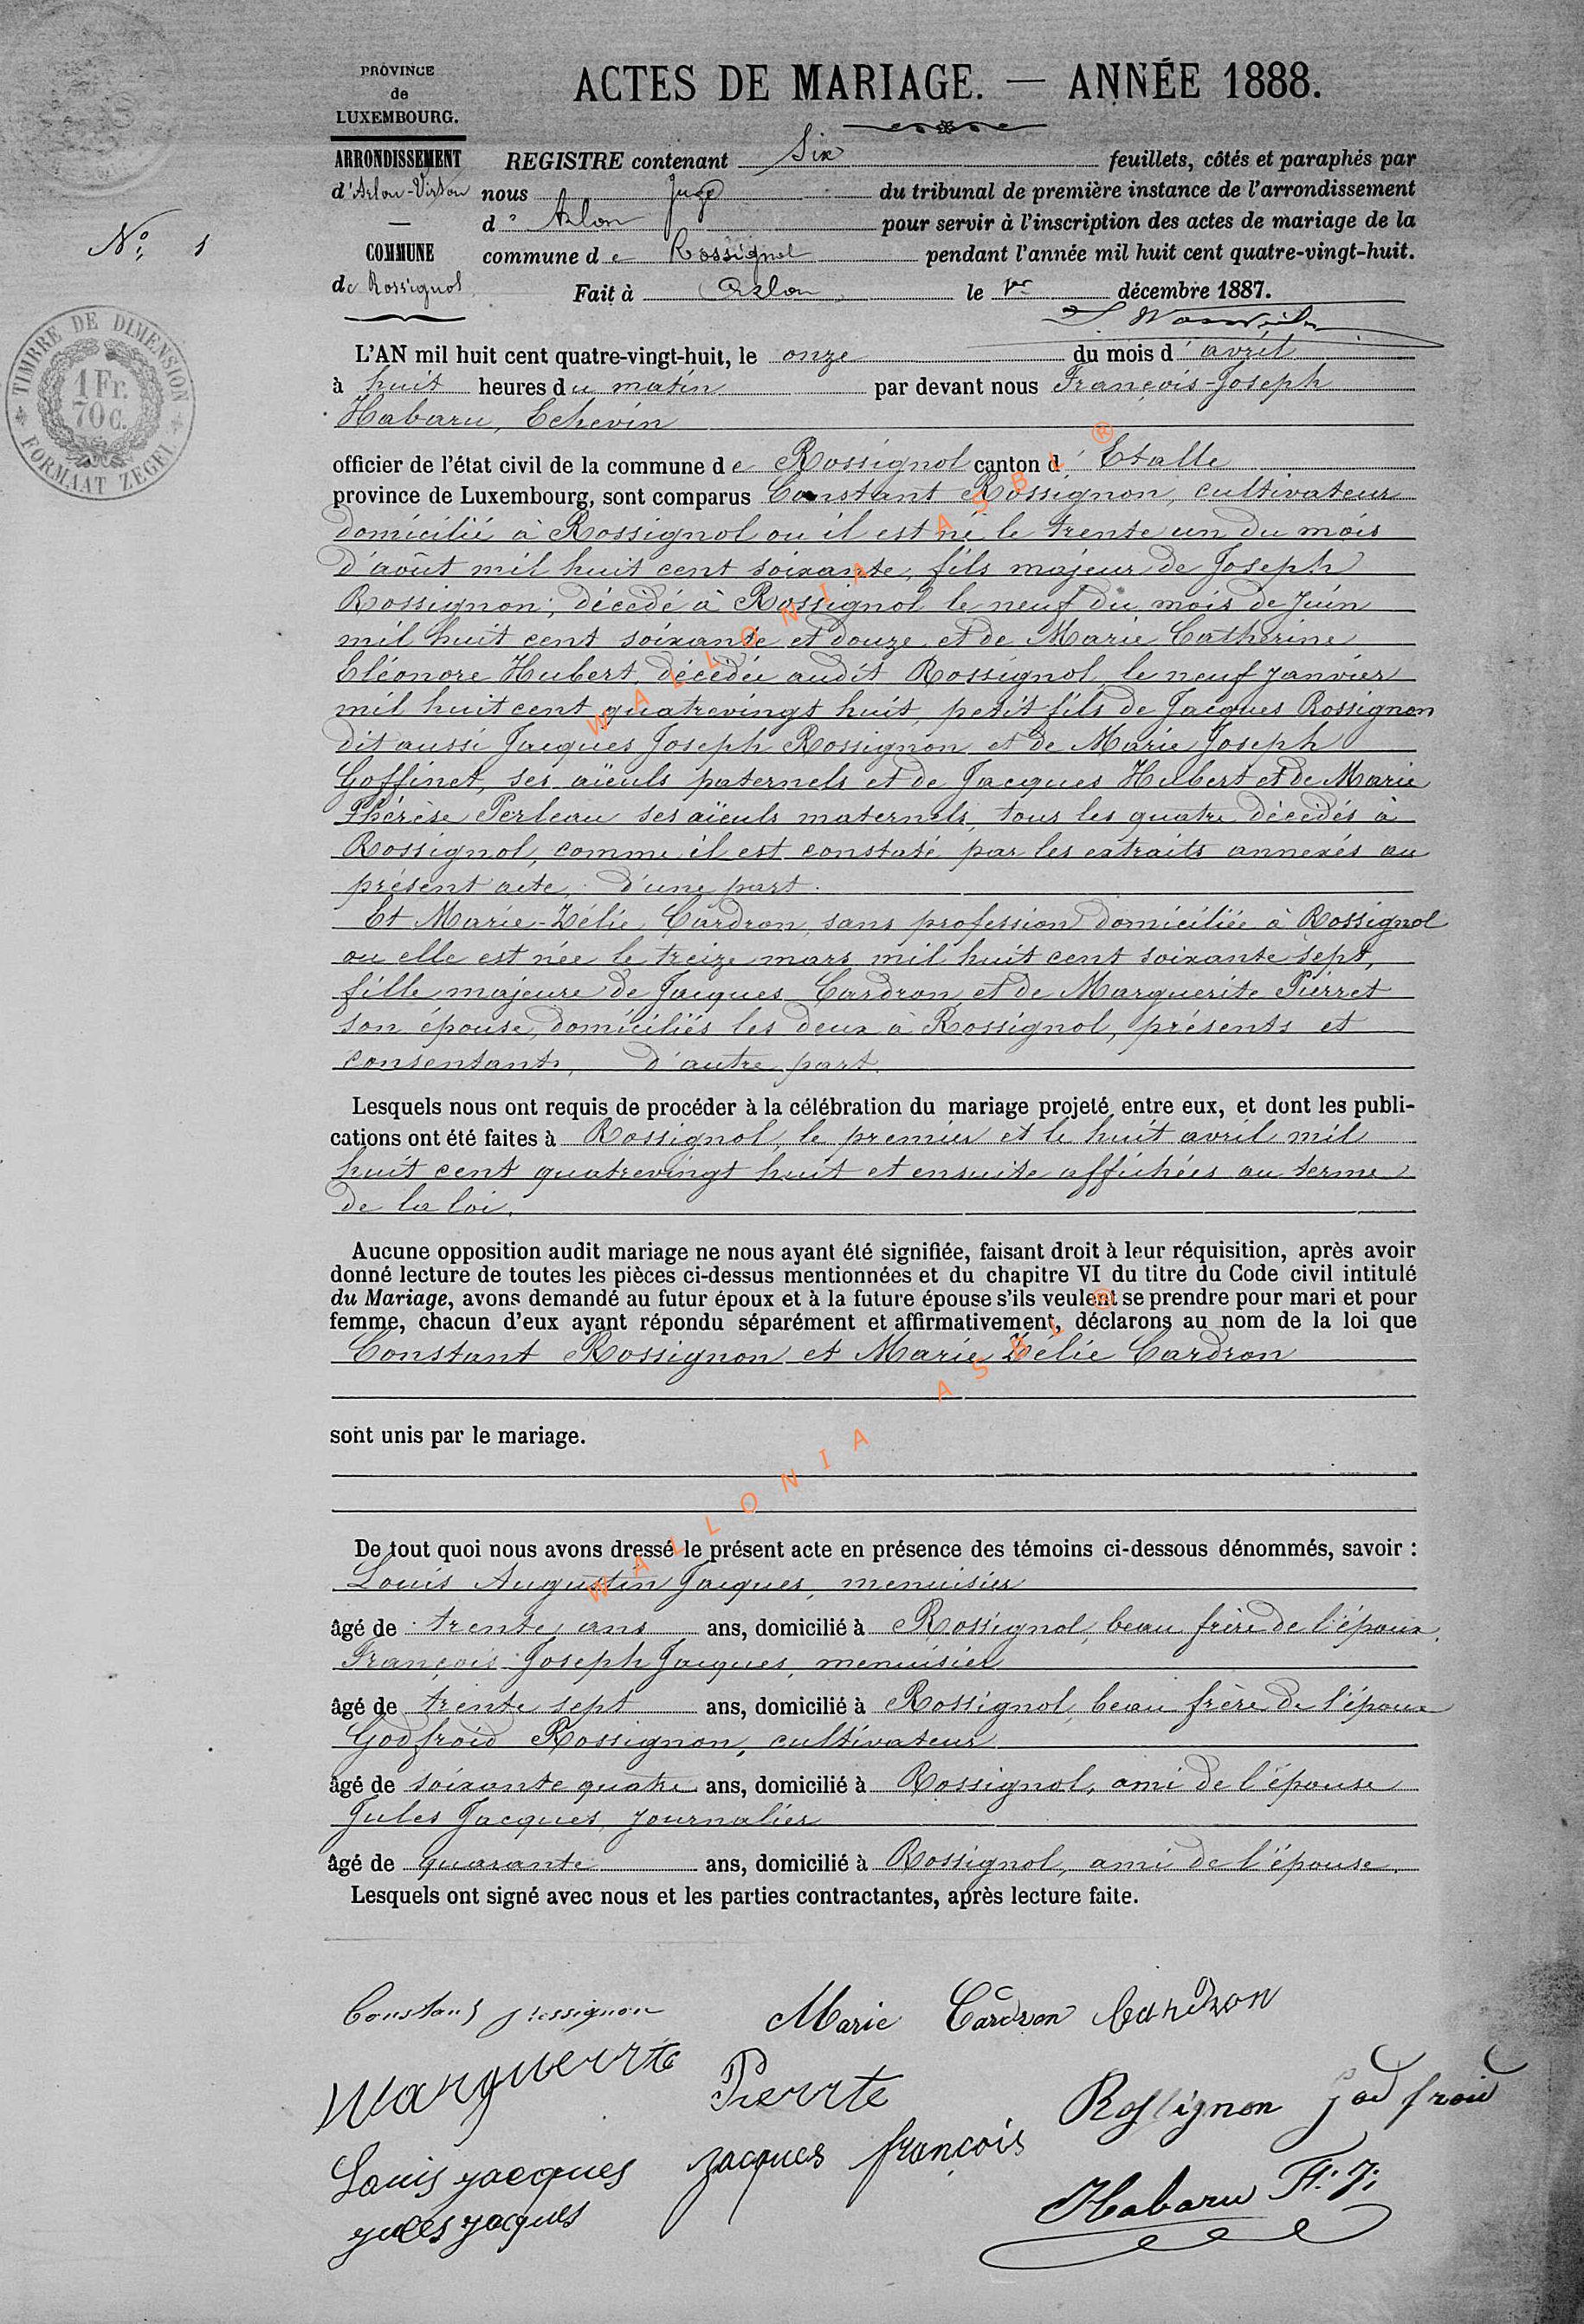 PROVINCE
de
LUXEMBOURG.
ACTES DE MARIAGE. — ANNÉE 1888.
ARRONDISSEMENT
d'Arlon-Virton
COMMUNE
de Rossignol
No. 1
TIMBRE DE DIMENSION
1 Fr.
70 C.
FORMAAT ZEGEL
REGISTRE contenant Six feuillets, côtés et paraphés par
nous Juge du tribunal de première instance de l'arrondissement
d' Arlon pour servir à l'inscription des actes de mariage de la
commune de Rossignol pendant l'année mil huit cent quatre-vingt-huit.
Fait à Arlon le 1er décembre 1887.
L'AN mil huit cent quatre-vingt-huit, le onze du mois d'avril
à huit heures du matin par devant nous François-Joseph
Habaru, Echevin
officier de l'état civil de la commune de Rossignol canton d'Etalle
province de Luxembourg, sont comparus Constant Rossignon, cultivateur
domicilié à Rossignol ou il est né le trente un du mois
d'août mil huit cent soixante, fils majeur de Joseph
Rossignon, décedé à Rossignol le neuf du mois de Juin
mil huit cent soixante et douze et de Marie Catherine
Eléonore Hubert, décédée audit Rossignol, le neuf janvier
mil huit cent quatrevingt huit, petit fils de Jacques Rossignon
dit aussi Jacques Joseph Rossignon et de Marie Joseph
Goffinet, ses aïeuls paternels et de Jacques Hubert et de Marie
Thérèse Perleau ses aïeuls maternels, tous les quatre décédés à
Rossignol, comme il est constaté par les extraits annexés au
présent acte, d'une part.
Et Marie-Zélie Cardron, sans profession domiciliée à Rossignol
ou elle est née le treize mars mil huit cent soixante sept,
fille majeure de Jacques Cardron et de Marguerite Pierret
son épouse, domiciliés les deux à Rossignol, présents et
consentants, d'autre part.
Lesquels nous ont requis de procéder à la célébration du mariage projeté entre eux, et dont les publi-
cations ont été faites à Rossignol, le premier et le huit avril mil
huit cent quatrevingt huit et ensuite affichées au terme
de la loi.
Aucune opposition audit mariage ne nous ayant été signifiée, faisant droit à leur réquisition, après avoir
donné lecture de toutes les pièces ci-dessus mentionnées et du chapitre VI du titre du Code civil intitulé
du Mariage, avons demandé au futur époux et à la future épouse s'ils veulent se prendre pour mari et pour
femme, chacun d'eux ayant répondu séparément et affirmativement, déclarons au nom de la loi que
Constant Rossignon et Marie Zélie Cardron
sont unis par le mariage.
De tout quoi nous avons dressé le présent acte en présence des témoins ci-dessous dénommés, savoir :
Louis Augustin Jacques, menuisier
âgé de trente ans ans, domicilié à Rossignol, beau frère de l'époux.
François Joseph Jacques, menuisier
âgé de trente sept ans, domicilié à Rossignol, beau frère de l'époux
Godfroid Rossignon, cultivateur
âgé de soixante quatre ans, domicilié à Rossignol, ami de l'épouse
Jules Jacques, journalier
âgé de quarante ans, domicilié à Rossignol, ami de l'épouse.
Lesquels ont signé avec nous et les parties contractantes, après lecture faite.
Constant Rossignon Marie Cardron Cardron
Marguerrite Pierrte Rossignon Godfroid
Louis jacques Jacques françois
jules jacques Habaru F. J.
WALLONIA ASBL ®
WALLONIA ASBL ®